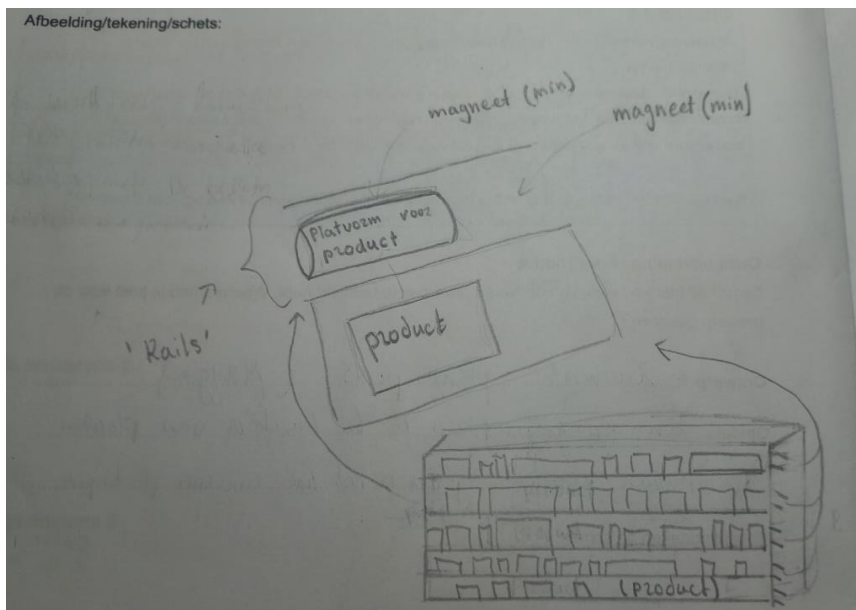 Afbeelding/tekening/schets:
magneet (min)
magneet (min)
Platvorm voor
product
'Rails'
product
(product)